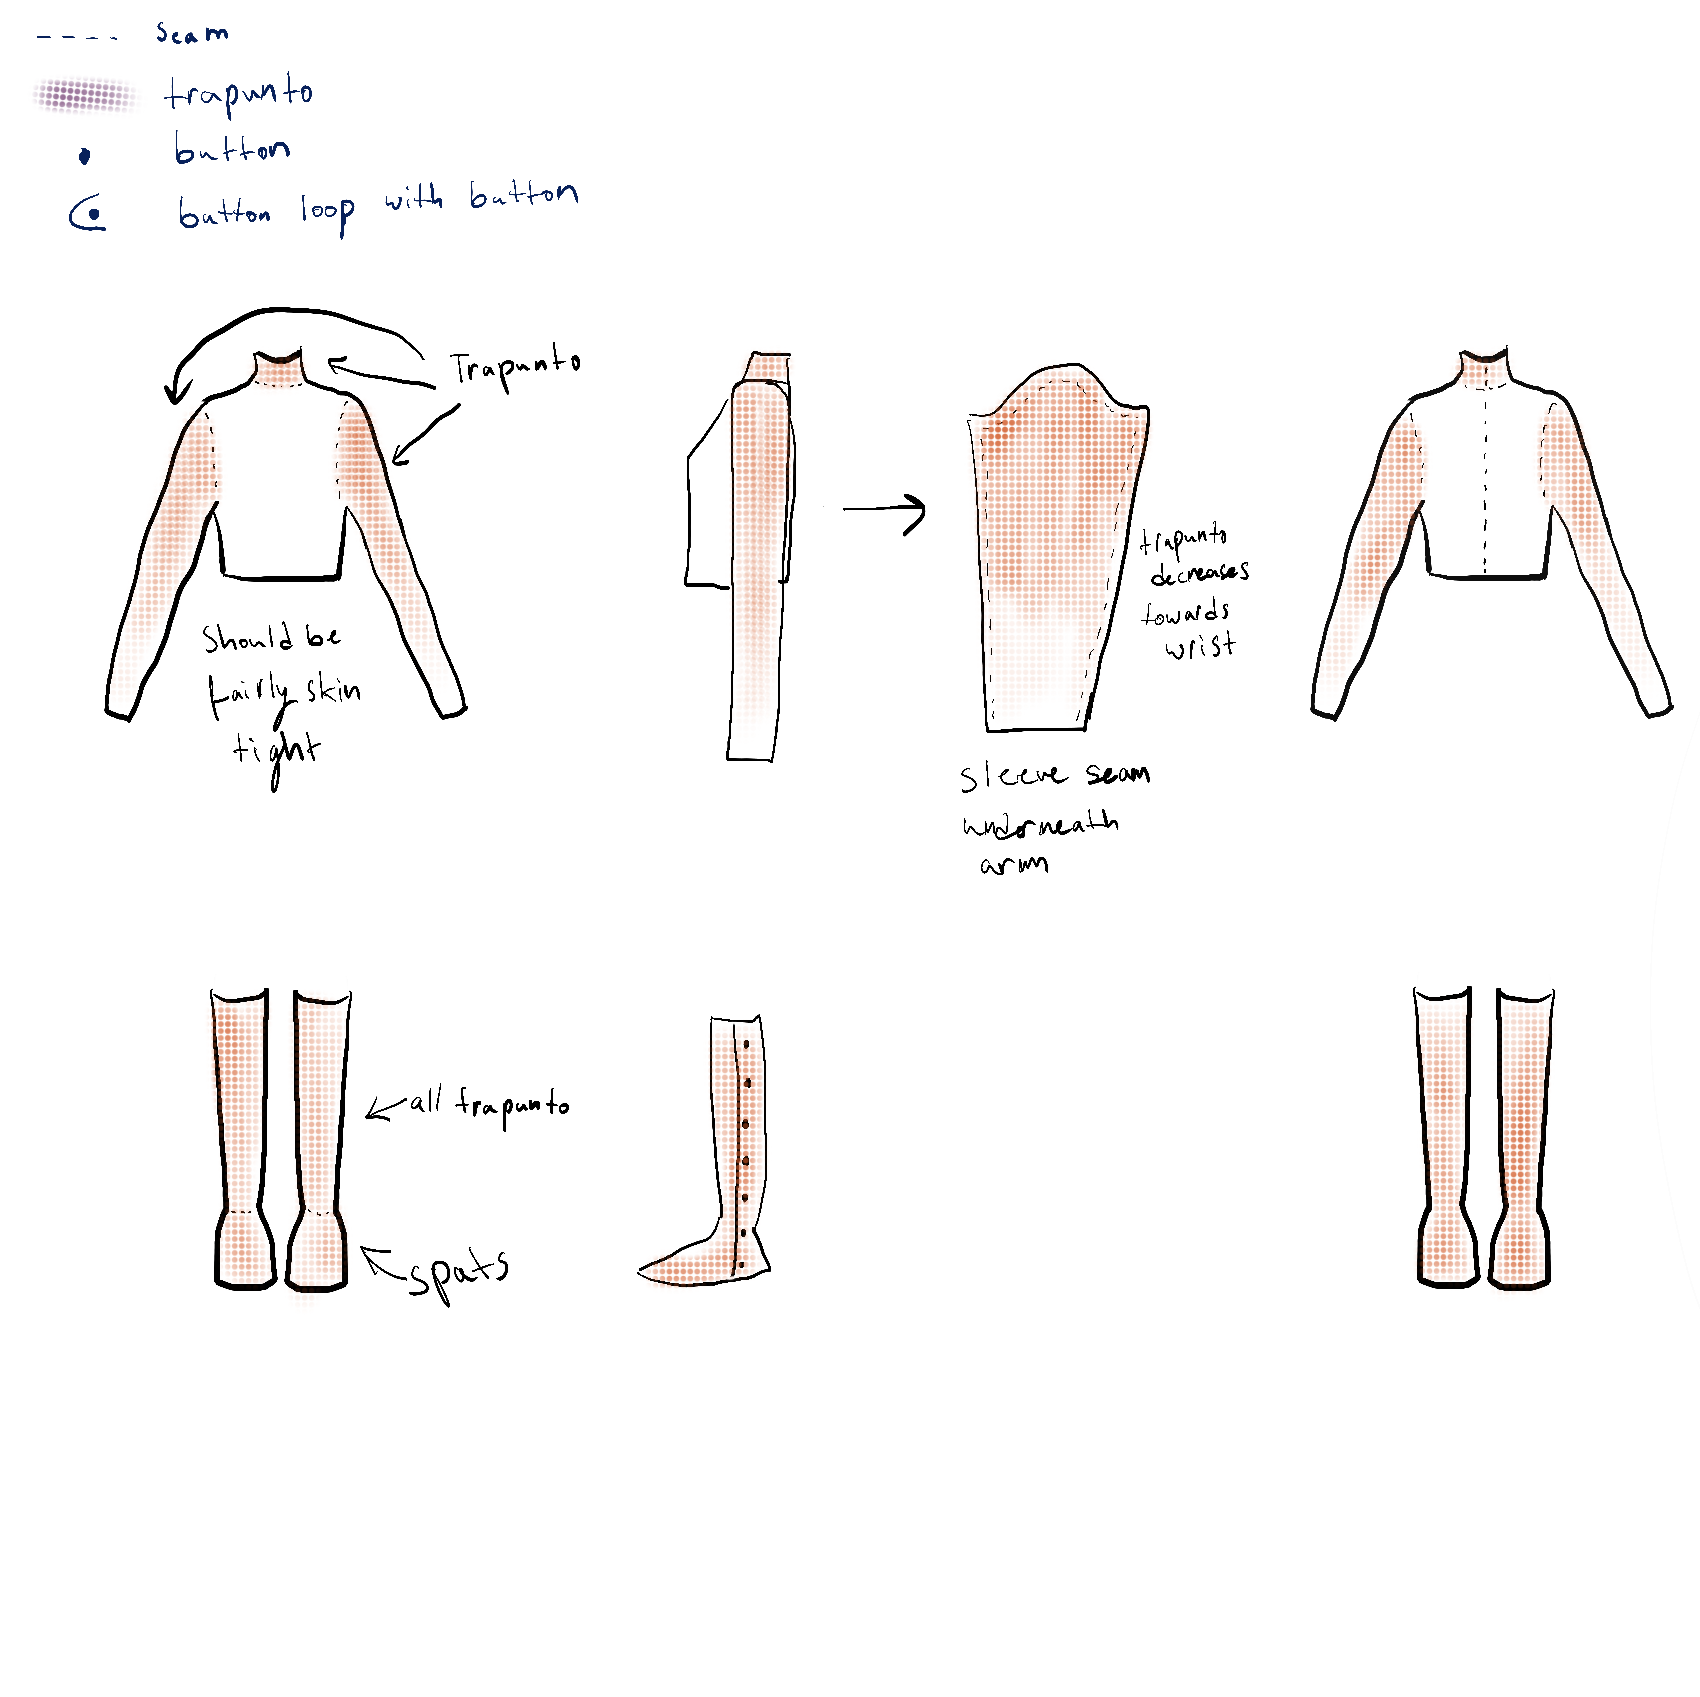 seam
trapunto
button
button loop with button
Trapunto
Should be
fairly skin
tight
trapunto
decreases
towards
wrist
sleeve seam
underneath
arm
all trapunto
spats